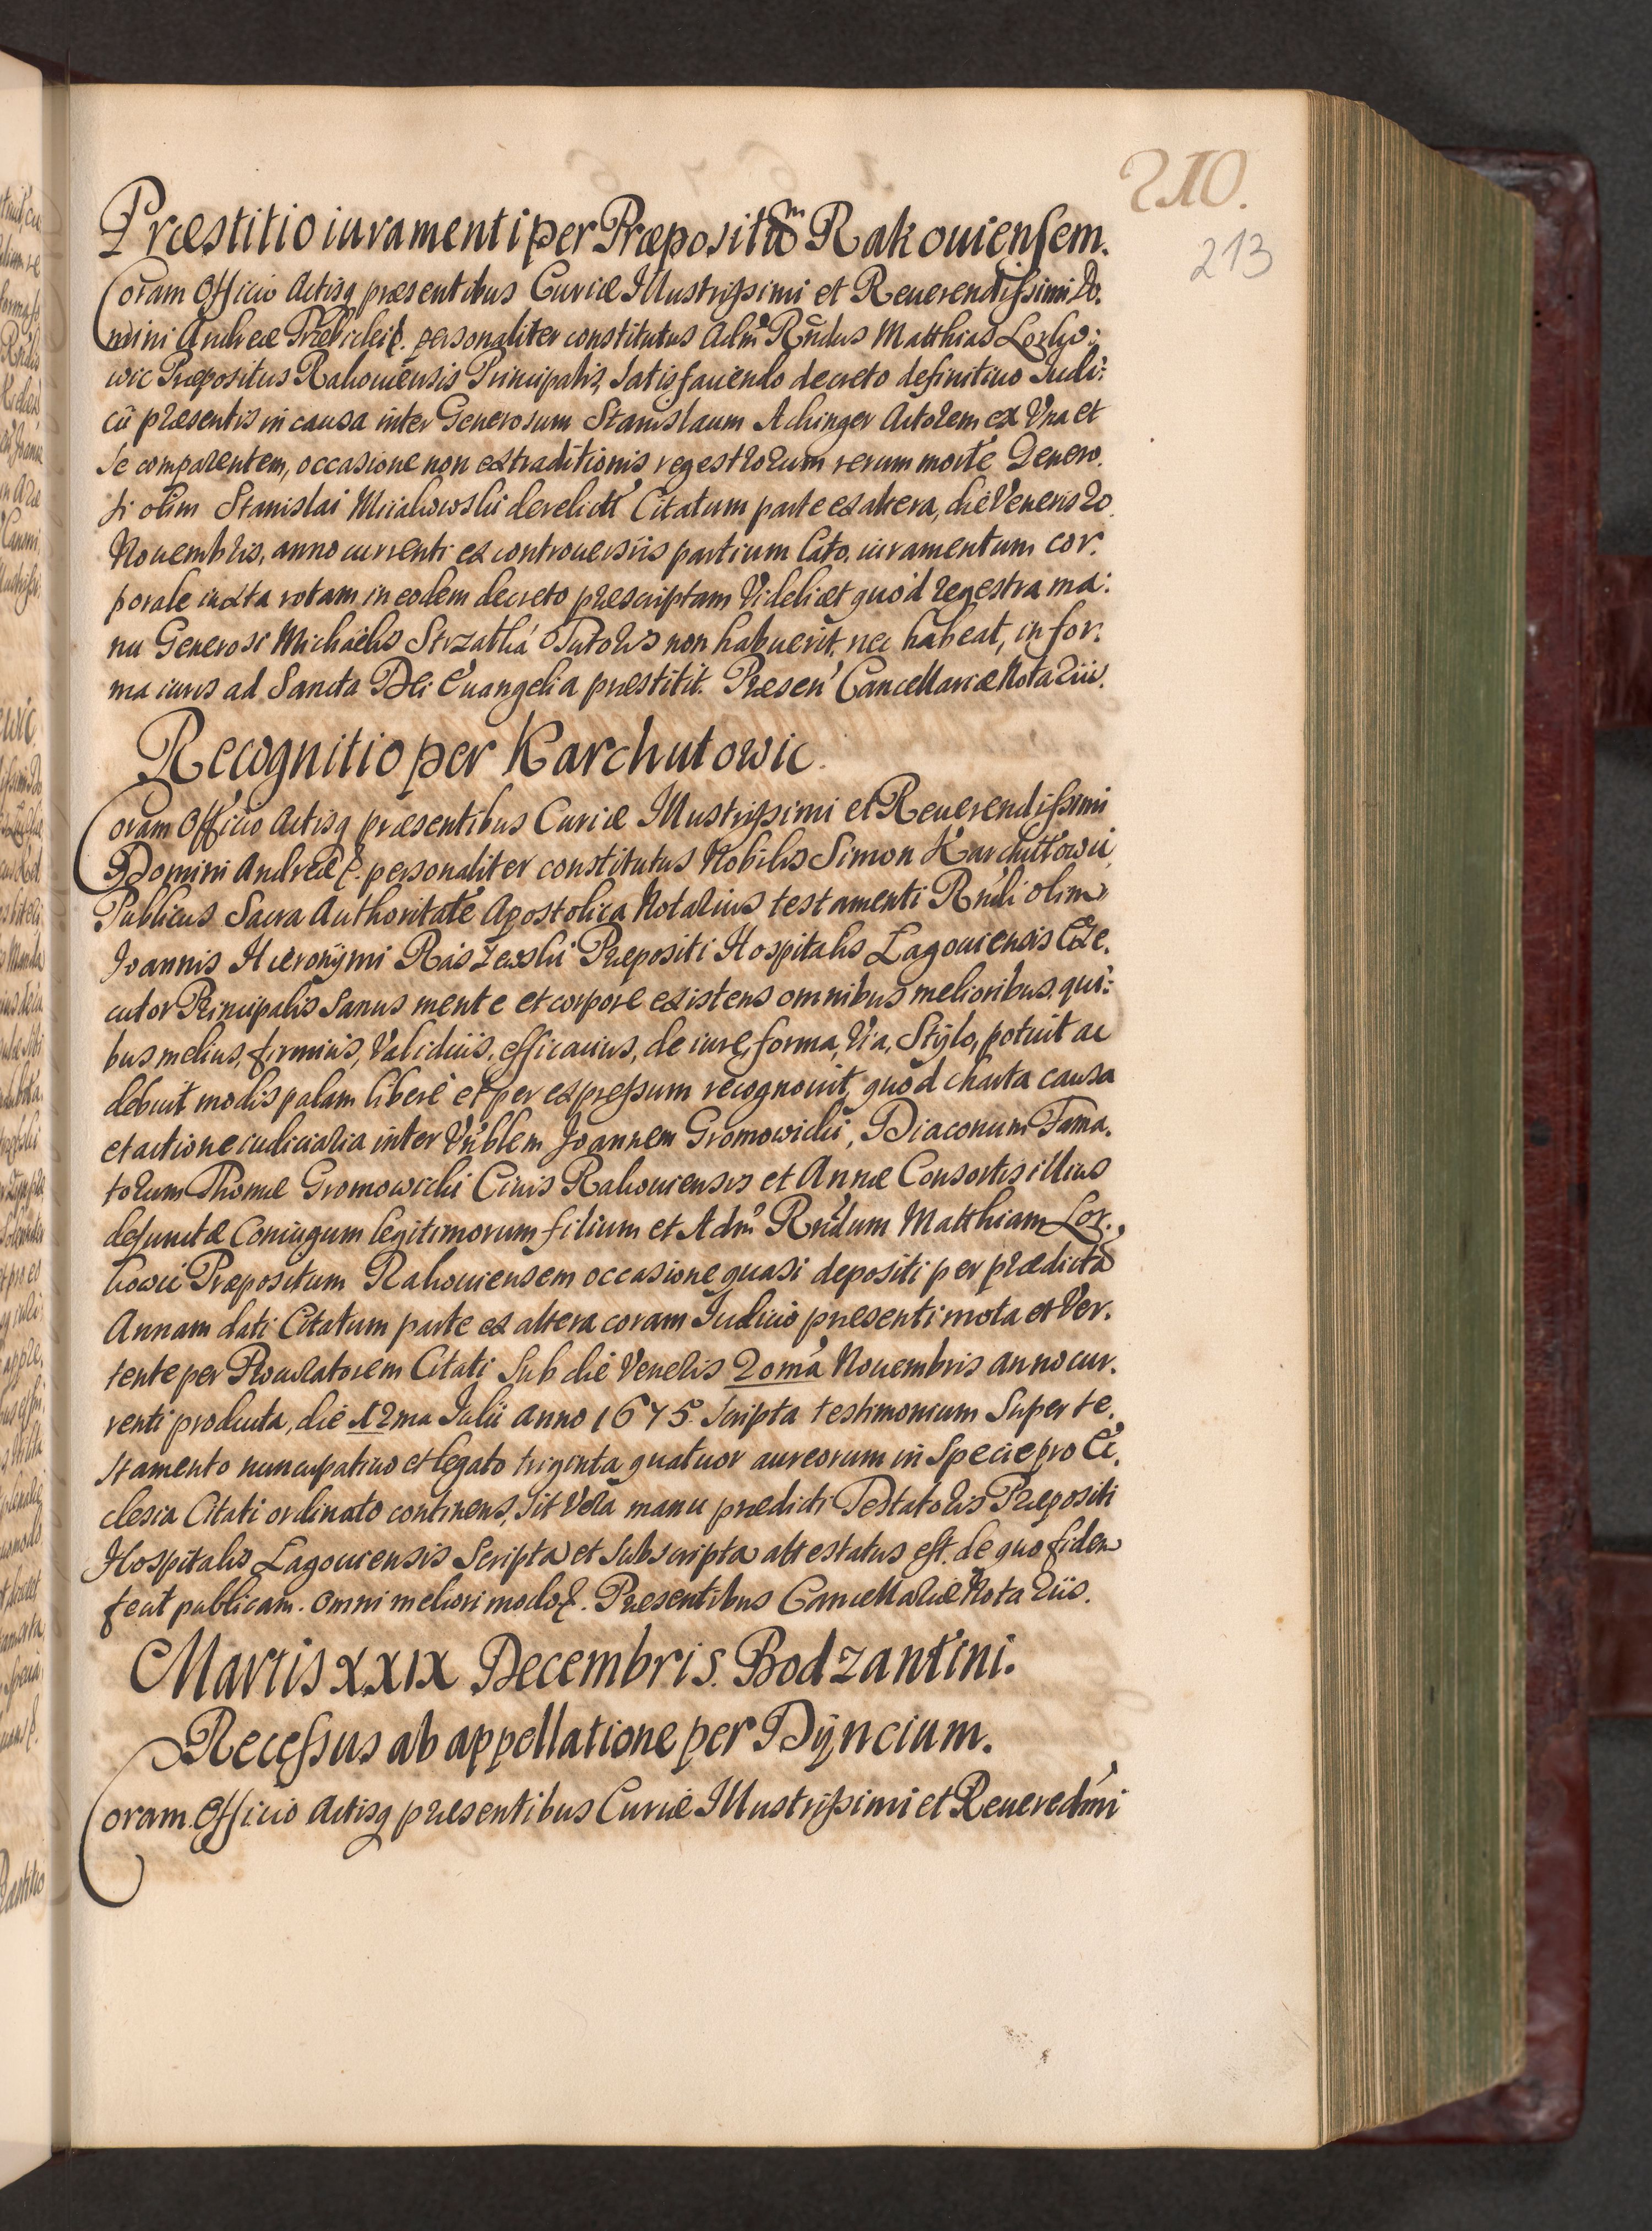 210.
213
Præstitio iuramenti per Præpositũ Rakouiensem.
Coram Officio Actisq præsentibus Curiæ Illustrissimi et Reuerendissimi Do:
mini Andreæ Trzebicki &. personaliter constitutus Adm Rndus Matthias
wic Præpositus Rakouiensis Principalis, satisfaciendo decreto definitiuo Iudi:
cii præsentis in causa inter Generosum Stanislaum Achinger Actorem ex Vna et
se comparentem, occasione non extraditionis regestrorum rerum morte Genero.
si olim Stanislai Miiakowski derelicti Citatum parte ex altera, die Veneris 20
Nouembris, anno currenti ex controuersiis partium lato, iuramentum cor:
porale iuxta rotam in eodem decreto præscriptam Videlicet quòd regestra ma:
nu Generosi Michaelis Strzałka Tutoris non habuerit, nec habeat, in for:
ma iuris ad Sancta Dei Euangelia præstitit. Præsen Cancellariæ Notariis.
Recognitio per Karchutowic.
Coram Officio Actisq præsentibus Curiæ Illustrissimi et Reuerendissimi
Domini Andreæ &. personaliter constitutus Nobilis Simon Karchuttowic
Publicus Sacra Authoritate Apostolica Notarius testamenti Rndi olim
Ioannis Hieronÿmi Raszewski Præpositi Hospitalis Lagouiensis Exe.
cutor Principalis sanus mente et corpore existens omnibus melioribus, qui:
bus melius, firmius, Validius, efficacius, de iure, forma, Via, Stÿlo, potuit ac
debuit modis palam liberè et per expressum recognouit, quòd charta causa
et actione iudiciaria inter Vnblem Joannem Gromowicki, Diaconum Fama.
torum Thomæ Gromowicki Ciuis Rakouiensis et Annæ Consortis illius
defunctæ Coniugum legitimorum filium et Adm Rndum Matthiam Lor.
kowic Præpositum Rakouiensem occasione quasi depositi per prædictã
Annam dati Citatum parte ex altera coram Iudicio præsenti mota et Ver.
tente per Procuratorem Citati sub die Veneris 20ma Nouembris anno cur.
renti producta, die 12ma Iulii anno 1675 scripta testimonium super te.
stamento nuncupatiuo et legato triginta quatuor aureorum in specie pro Ec.
clesia Citati ordinato continens, sit Vera manu prædicti Testatoris Præpositi
Hospitalis Lagouiensis scripta et subscripta attestatus est. de quo fidem
fecit publicam. omni meliori modo &. Præsentibus Cancellariæ Notariis.
Martis XXIX Decembris. Bodzantini.
Recessus ab appellatione per Dÿncium.
Coram Officio Actisq præsentibus Curiæ Illustrissimi et Reueredmi